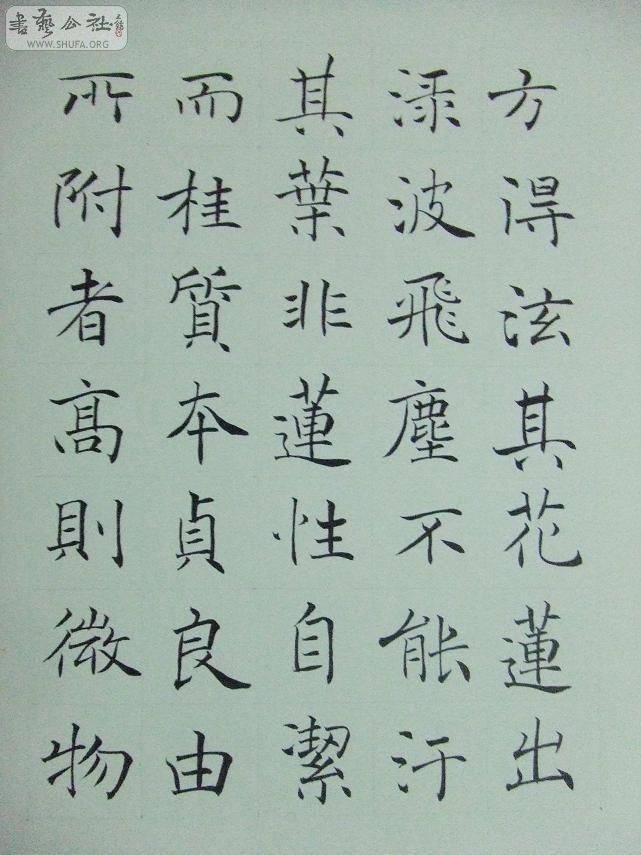 書藝公社
WWW.SHUFA.ORG
方得泫其花蓮出
渌波飛塵不能汙
其葉非蓮性自潔
而桂質本貞良由
所附者高則微物